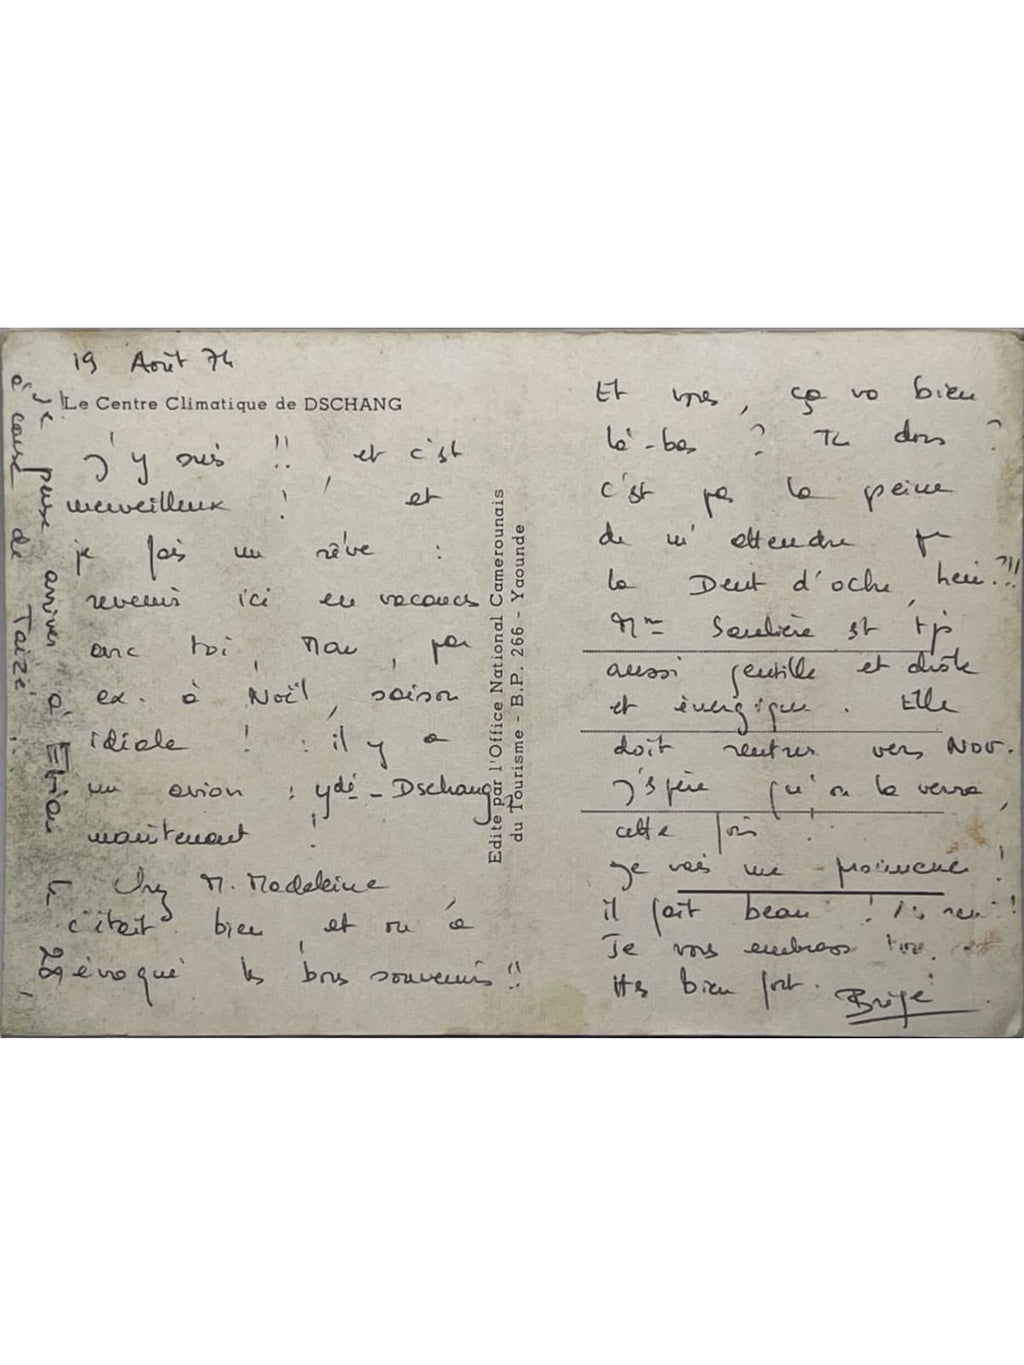 19 Août 74
Le Centre Climatique de DSCHANG
J'y suis !! , et c'est
merveilleux ! et
je fais un rêve :
revenir ici en vacances
avec toi, Man, par
ex. à Noël, saison
idéale ! : il y a
un avion : Ydé - Dschang
maintenant !
Chez M. Madeleine
c'était bien, et on a
évoqué les bons souvenirs !!
Je pense arriver à Evian le 29,
à cause de Taizé
Edité par l'Office National Camerounais
du Tourisme - B.P. 266 - Yaounde
Et vous, ça va bien
là-bas ? Tu dors ?
c'est pas la peine
de m'attendre pr
la Dent d'oche, hein ?!!
Mme Saulière est tjs
aussi gentille et drôle
et énergique. Elle
doit rentrer vers Nov.
J'espère qu'on la verra,
cette fois !
Je vais me promener !
il fait beau !
Je vous embrasse
tts bien fort.
Brige